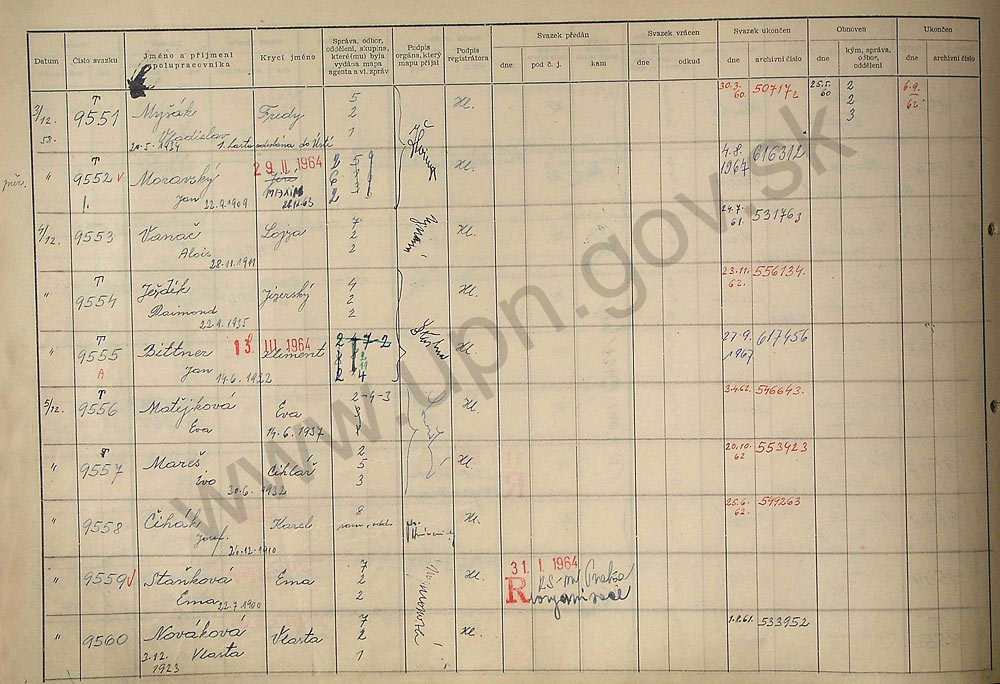 Datum
Číslo svazku
Jméno a příjmení spolupracovníka
Krycí jméno
Správa, odbor, oddělení, skupina, které(mu) byla vydána mapa agenta a vl. zpráv
Podpis orgánu, který mapu přijal
Podpis registrátora
Svazek předán
dne
pod č. j.
kam
Svazek vrácen
dne
odkud
Svazek ukončen
dne
archivní číslo
Obnoven
dne
kým, správa, odbor, oddělení
Ukončen
dne
archivní číslo
3/12. 58. T 9551 Myřák Fredy 5 2 1 Hl. 30.3. 60. 50717 25.5. 60 2 2 3 6.9. 62
Vladislav 1. karta odeslána do Ústí
21.5.1934
" T 9552 Moravský 29 II 1964 Hl. 4.8. 1967 616312
1. Jan 22.9.1909 MAXIM 28.12.63
4/12. T 9553 Vanač Lojza 7 2 2 Hl. 24.7. 61. 53176
Alois 28.11.1911
" T 9554 Ježdík Jizerský 4 2 2 Hl. 23.11. 62. 556134.
Raimond 22.9.1935
" T 9555 Bittner 13 III 1964 Kliment Hl. 27-9. 1967 617456
A Jan 14.6.1922
5/12. T 9556 Matějková Eva 2-4-3 Hl. 3.4.62. 546643.
Eva 14.6.1937
" T 9557 Mareš Cihlář 2 5 3 Hl. 20.10. 62 553423
Ivo 30.6.1932
" 9558 Čihák Karel 8 Hl. 25.6. 62. 549263
Josef. 26.12.1910
" 9559 Staňková Ema 7 2 2 Hl. 31. 1. 1964
Ema 22.7.1900 R
" 9560 Nováková Vlasta 7 2 1 Hl. 1.8.61. 533952
3.12. 1923 Vlasta
www.upn.gov.sk